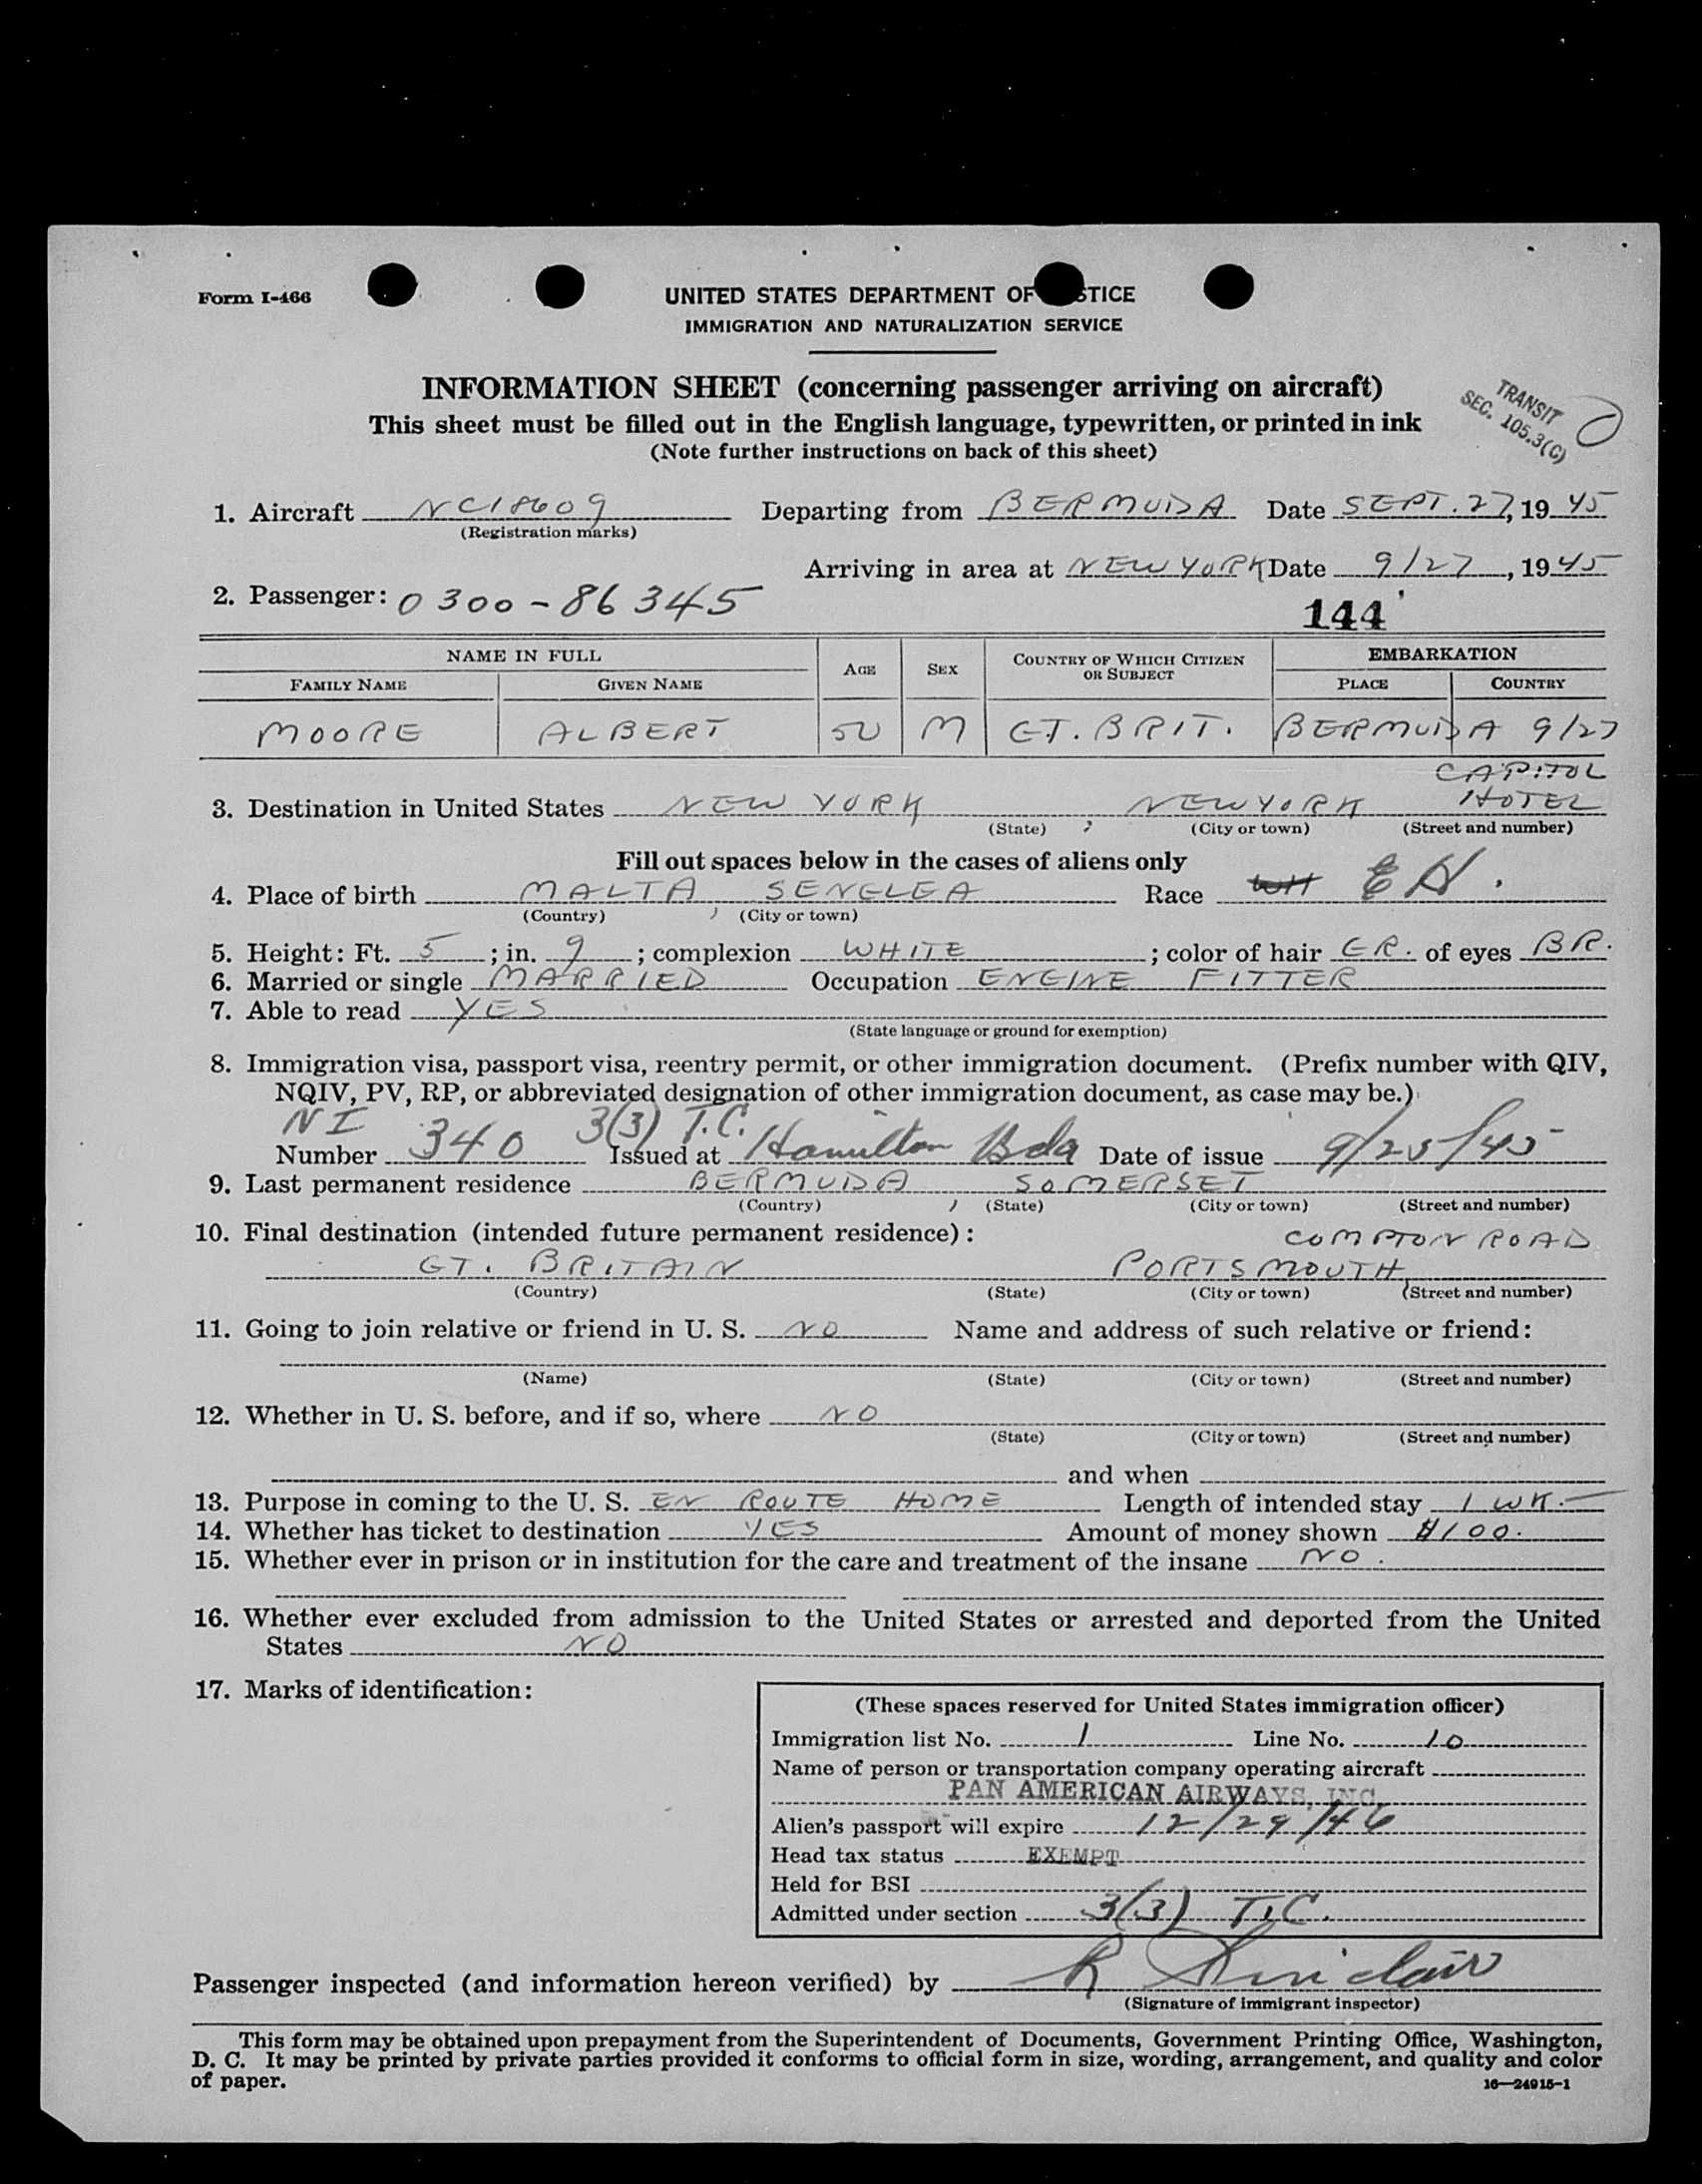 Form I-466
UNITED STATES DEPARTMENT OF STICE
IMMIGRATION AND NATURALIZATION SERVICE
INFORMATION SHEET (concerning passenger arriving on aircraft)
TRANSIT
SEC. 105.3(C)
This sheet must be filled out in the English language, typewritten, or printed in ink
(Note further instructions on back of this sheet)
1. Aircraft NC18609 Departing from BERMUDA Date SEPT. 27, 1945
(Registration marks)
Arriving in area at NEW YORK Date 9/27, 1945
2. Passenger: 0300-86345
144
NAME IN FULL AGE SEX COUNTRY OF WHICH CITIZEN OR SUBJECT EMBARKATION
FAMILY NAME GIVEN NAME PLACE COUNTRY
MOORE ALBERT 50 M GT. BRIT. BERMUDA 9/27
CAPITOL
3. Destination in United States NEW YORK NEW YORK HOTEL
(State) ; (City or town) (Street and number)
Fill out spaces below in the cases of aliens only
4. Place of birth MALTA SENGLEA Race WH EN.
(Country) , (City or town)
5. Height: Ft. 5; in. 9; complexion WHITE; color of hair GR. of eyes BR.
6. Married or single MARRIED Occupation ENGINE FITTER
7. Able to read YES
(State language or ground for exemption)
8. Immigration visa, passport visa, reentry permit, or other immigration document. (Prefix number with QIV,
NQIV, PV, RP, or abbreviated designation of other immigration document, as case may be.)
NI 3(3) T.C.
Number 340 Issued at Hamilton Bda Date of issue 9/25/45
9. Last permanent residence BERMUDA SOMERSET
(Country) , (State) (City or town) (Street and number)
10. Final destination (intended future permanent residence): COMPTON ROAD
GT. BRITAIN PORTSMOUTH
(Country) (State) (City or town) (Street and number)
11. Going to join relative or friend in U. S. NO Name and address of such relative or friend:
(Name) (State) (City or town) (Street and number)
12. Whether in U. S. before, and if so, where NO
(State) (City or town) (Street and number)
and when
13. Purpose in coming to the U. S. EN ROUTE HOME Length of intended stay 1 WK.
14. Whether has ticket to destination YES Amount of money shown $100.
15. Whether ever in prison or in institution for the care and treatment of the insane NO.
16. Whether ever excluded from admission to the United States or arrested and deported from the United
States NO
17. Marks of identification:
(These spaces reserved for United States immigration officer)
Immigration list No. 1 Line No. 10
Name of person or transportation company operating aircraft
PAN AMERICAN AIRWAYS, INC.
Alien's passport will expire 12/29/46
Head tax status EXEMPT
Held for BSI
Admitted under section 3(3) T.C.
Passenger inspected (and information hereon verified) by R Sinclair
(Signature of immigrant inspector)
This form may be obtained upon prepayment from the Superintendent of Documents, Government Printing Office, Washington,
D. C. It may be printed by private parties provided it conforms to official form in size, wording, arrangement, and quality and color
of paper.
16—24915-1